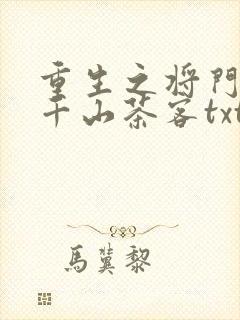 重生之将門
千山茶客txt
馬蓂黎